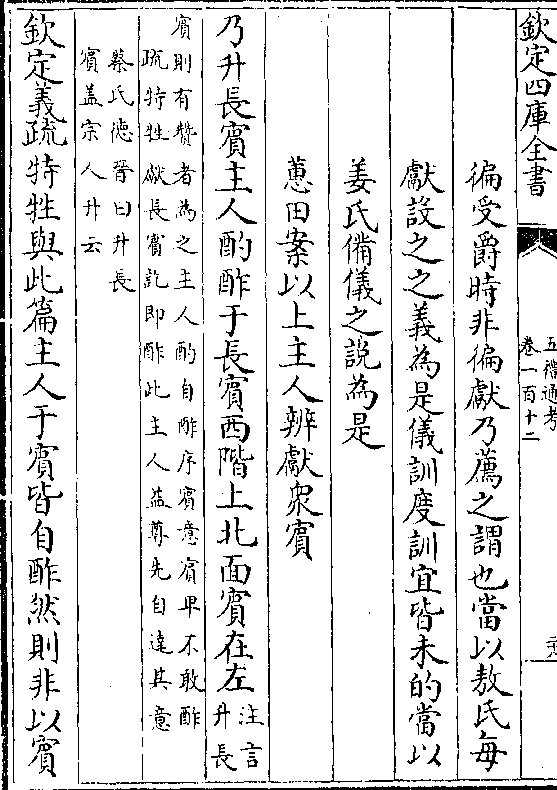 欽定四庫全書
五禮通考
卷一百十二
徧受爵時非徧獻乃薦之謂也當以敖氏每
獻設之之義為是儀訓度訓宜皆未的當以
姜氏備儀之説為是
蕙田案以上主人辨獻衆賓
乃升長賓主人酌酢于長賓西階上北面賓在左
注言
升長
賓則有贊者為之主人酌自酢序賓意賓卑不敢酢
疏特牲獻長賓訖即酢此主人益尊先自達其意
蔡氏德晉曰升長
賓盖宗人升云
欽定義疏特牲與此篇主人于賓皆自酢然則非以賓